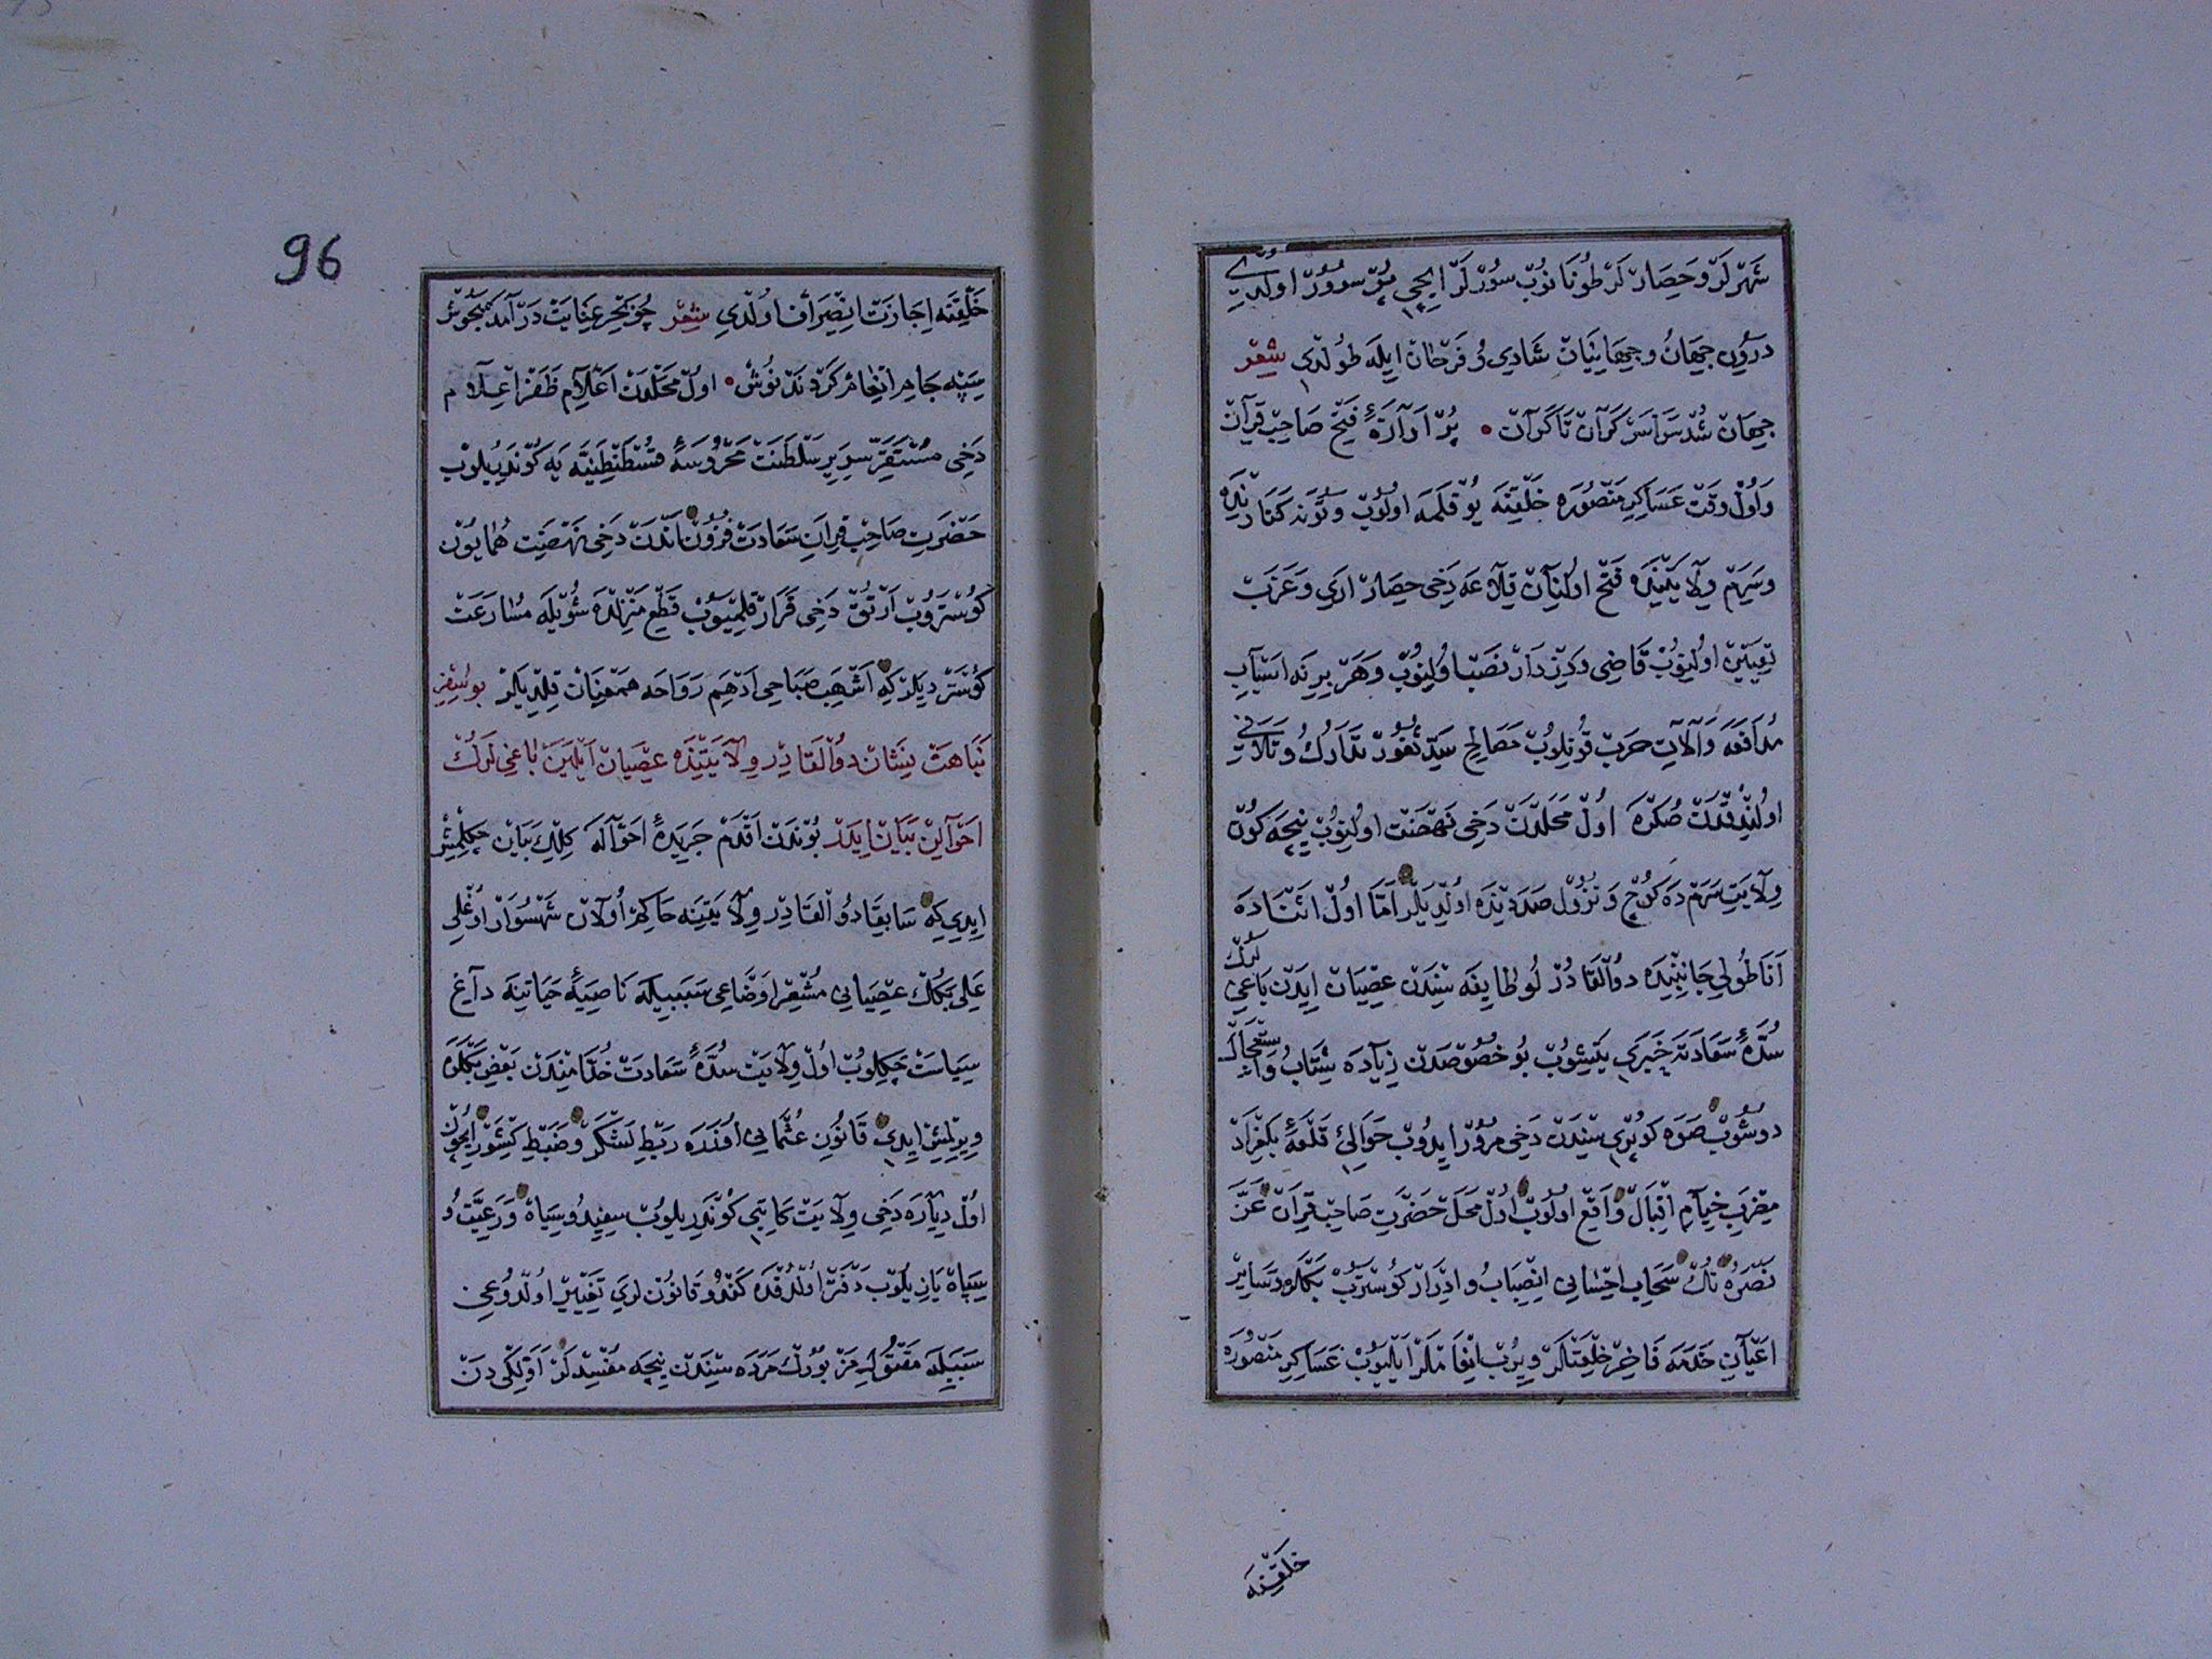 شَهْرلَرْ وحِصَارْلَرْ طُونَانُوبْ سُورْلَرْ ايچِي پُرْ سُرُورْ اولدِي
دَرُونِ جِهَانْ وجِهَانِيَانْ شَادِي وُ فَرَحْدَنْ ايلَه طُولْدِى شِعِرْ
جِهَانْ شُدْ سَرَاسَرْ كَرَانْ تَا كَرَانْ • پُرْ آوَازَهٔ فَتْحِ صَاحِبْ قِرَانْ
وَاوُلْ وقتْ عَسَاكِرِ مَنْصُورَه خَلْقِنَه يُوقْلَمَه اولُوبْ وتُونَه كَنَارنْدَه
وسَرِمْ وِلَايَتِنْدَه فَتْح اولنَانْ قِلَاعَه دَخِى حِصَارْ ارِي وعَزَبْ
تَعْيِينْ اولِنُوبْ قَاضِى ودِزْدَارْ نَصْبْ اولِنُوبْ وهَرْ بِرِنَه اسْبَابِ
مُدَافَعَه وَآلَاتِ حرَبْ قُونِلُوبْ مَصَالِحِ سَدِّ ثُغُورْ تَدَارُكْ وتَلَافِي
اولُنْدُقْدَنْ صُكْرَه اولْ مَحَلدَنْ دَخِى نَهْضَتْ اولِنُوبْ نِيچَه كُونْ
وِلَايَتِ سَرِمْ دَه كوُچ وَنُزُولْ صَدَدِنْدَه اولْدِيلَرْ امَّا اولْ اثْنَادَه
اَنَاطُولِي جَانِبِنْدَه دوُالْقَادُرْلُو طَايِفَه سِنْدَنْ عِصْيَانْ ايدَنْ بَاغِيلَرُكْ
سُدَّهٔ سَعَادَتَه خَبَرِي يِتِيشُوبْ بُو خُصُوصْدَنْ زِيَادَه شِتَابْ وَاسْتِعْجَالَه
دوشُوبْ صَوَه كوپْرِي سِنْدَنْ دَخِى مُرُورْ ايدُوبْ حَوَالِئ قَلْعَهٔ بَلِغْرَادْ
مَضْرِبِ خِيَامِ اقْبَالْ وَاقِعْ اولُوبْ اولْ مَحَلْ حَضْرَتِ صَاحِبْ قِرَانْ عَزَّ
نَصْرُهُ نُكْ سَحَابِ احْسَانِى انْصِبَابْ وادْرَارْ كوسْتَرُوبْ بَكْلَرَه وسَايِرْ
اعْيَانِ خَدَمَه فَاخِرْ خِلْعَتْلَرْ وِيرُبْ انْعَامْلَرْ ايلَيُوبْ عَسَاكِرِ مَنْصُورَه
خلقنه
96
خَلْقِنَه اِجَازَتِ انْصِرَافْ اولْدِي شِعِرْ چُو بَحْرِ عِنَايَتْ دَرْآمَدْ بَجُوشْ
سِپَه جَامِ انْعَامْ كَرْدَنْدْ نُوشْ • اولْ مَحَلْدَنْ اعْلَامِ ظَفَرْ اعْلَامْ
دَخِى مُسْتَقَرِّ سَرِيرِ سَلْطَنَتْ مَحْرُوسَهٔ قُسْطَنْطِنِيَّه يَه كُونْدَرِيلُوبْ
حَضْرَتِ صَاحِبْ قِرَانِ سَعَادَتْ فُزُونْ اندَنْ دَخِى نَهْضَتِ هُمَايُونْ
كُوسْتَرُوبْ ارْتُقْ دَخِى قَرَارْ قِلْمَيُوبْ قَطْعِ مَنْزِلْدَه شُويْلَه مُسَارَعَتْ
كُوسْتَرْدِيلَرْ كِه اشْهَبِ صَبَاحِى ادْهَمِ رَوَاحَه هَمْعِنَانْ قِلْدِيلَرْ بو سَفَرِ
نَبَاهَتْ نِشَانْ دوُالْقَادِرْ وِلَايَتِنْدَه عِصْيَانْ ايْلَيَنْ بَاغِى لَرُكْ
احْوَالِنْ بَيَانْ ايدَرْ بُونْدَنْ اقْدَمْ جَرِيدَهٔ احْوَالَه كِلْكِ بَيَانْ چَكِلْمِشْ
ايدِي كِه سَابِقَا دوُالْقَادِرْ وِلَايَتِنَه حَاكِمْ اُولَانْ شَهْسُوَارْ اوغْلِى
عَلِى بَكُكْ عِصْيَانِى مُشْعِرْ اوضَاعِى سَبَبِيلَه نَاصِيَهٔ حَيَاتِنَه دَاغِ
سِيَاسَتْ چَكِلُوبْ اولْ وِلَايَتْ سُدَّهٔ سَعَادَتْ خُدَّامِنْدَنْ بَعْضِ بَكْلَرَه
وِيرِلْمِشْ ايدِي قَانُونِ عُثْمَانِى اوزَرَه رَبْطِ لَشْكَرْ وضَبْطِ كِشْوَرْ ايچُونْ
اولْ دِيَارَه دَخِى وِلَايَتْ كَاتِبِى كُونْدَرِيلُوبْ سِفِيدْ وسِيَاهْ وَرَعِيَّتْ وُ
سِپَاهْ يَازِيلُوبْ دَفْتَرْ اولُدُقْدَه كَنْدُو قَانُونْ لَرِي تَغْيِيرْ اولْدُوغِى
سَبَبِيلَه مَقْتُولِ مَزْبُورُكْ مَرَدَه سِنْدَنْ نِيچَه مُفْسِدْلَرْ اوَلْكِى دَنْ